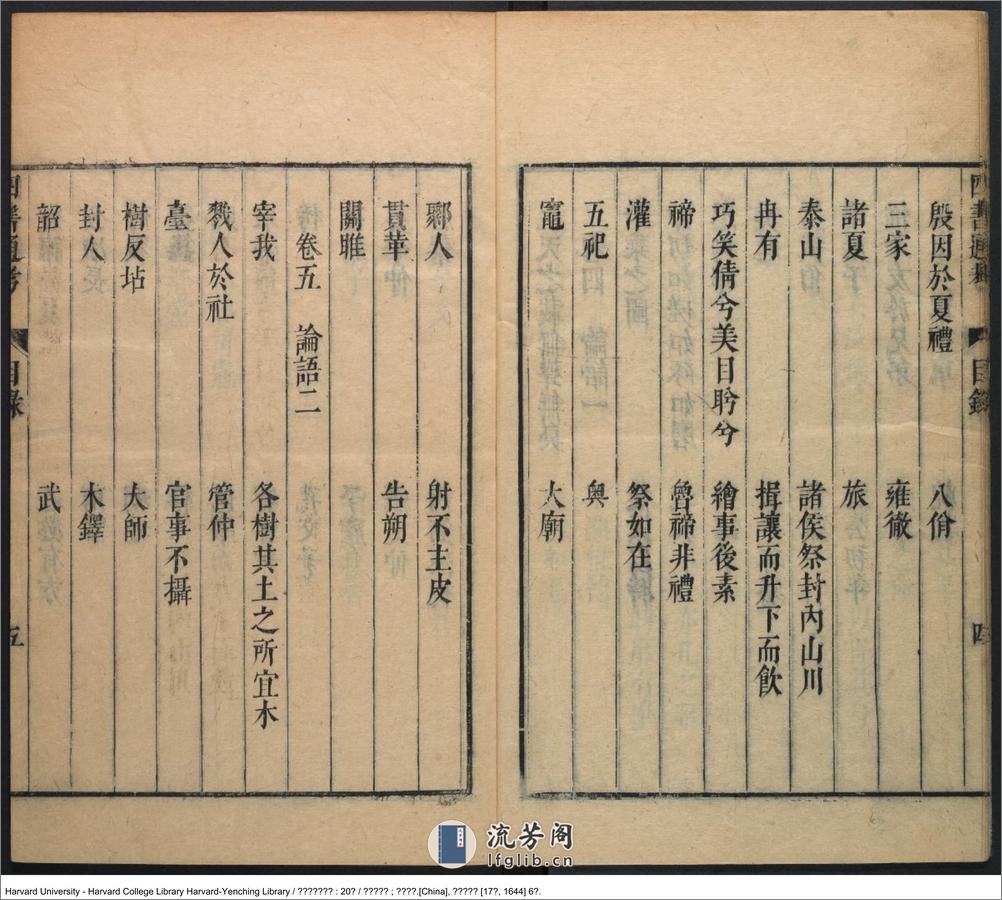 四書通考 目錄 四
殷因於夏禮 八佾
三家 雍徹
諸夏 旅
泰山 諸侯祭封內山川
冉有 揖讓而升下而飲
巧笑倩兮美目盻兮 繪事後素
禘 魯禘非禮
灌 祭如在
五祀 奥
竈 大廟
鄹人 射不主皮
貫革 告朔
關雎
卷五 論語二
宰我 各樹其土之所宜木
戮人於社 管仲
臺 官事不攝
樹反坫 大師
封人 木鐸
韶 武
四書通考 目錄 五
流芳阁
lfglib.cn
Harvard University - Harvard College Library Harvard-Yenching Library / ??????? : 20? / ????? ; ????.[China], ????? [17?, 1644] 6?.